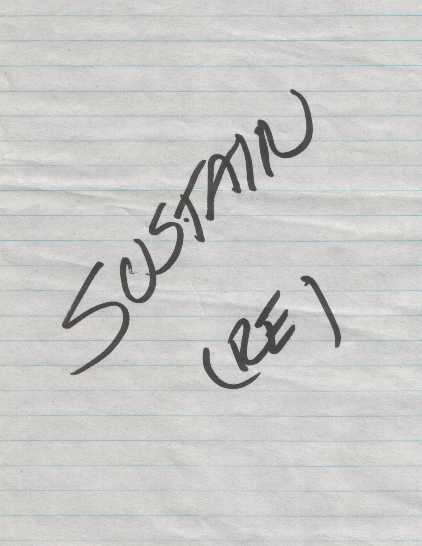 SUSTAIN
(RE)